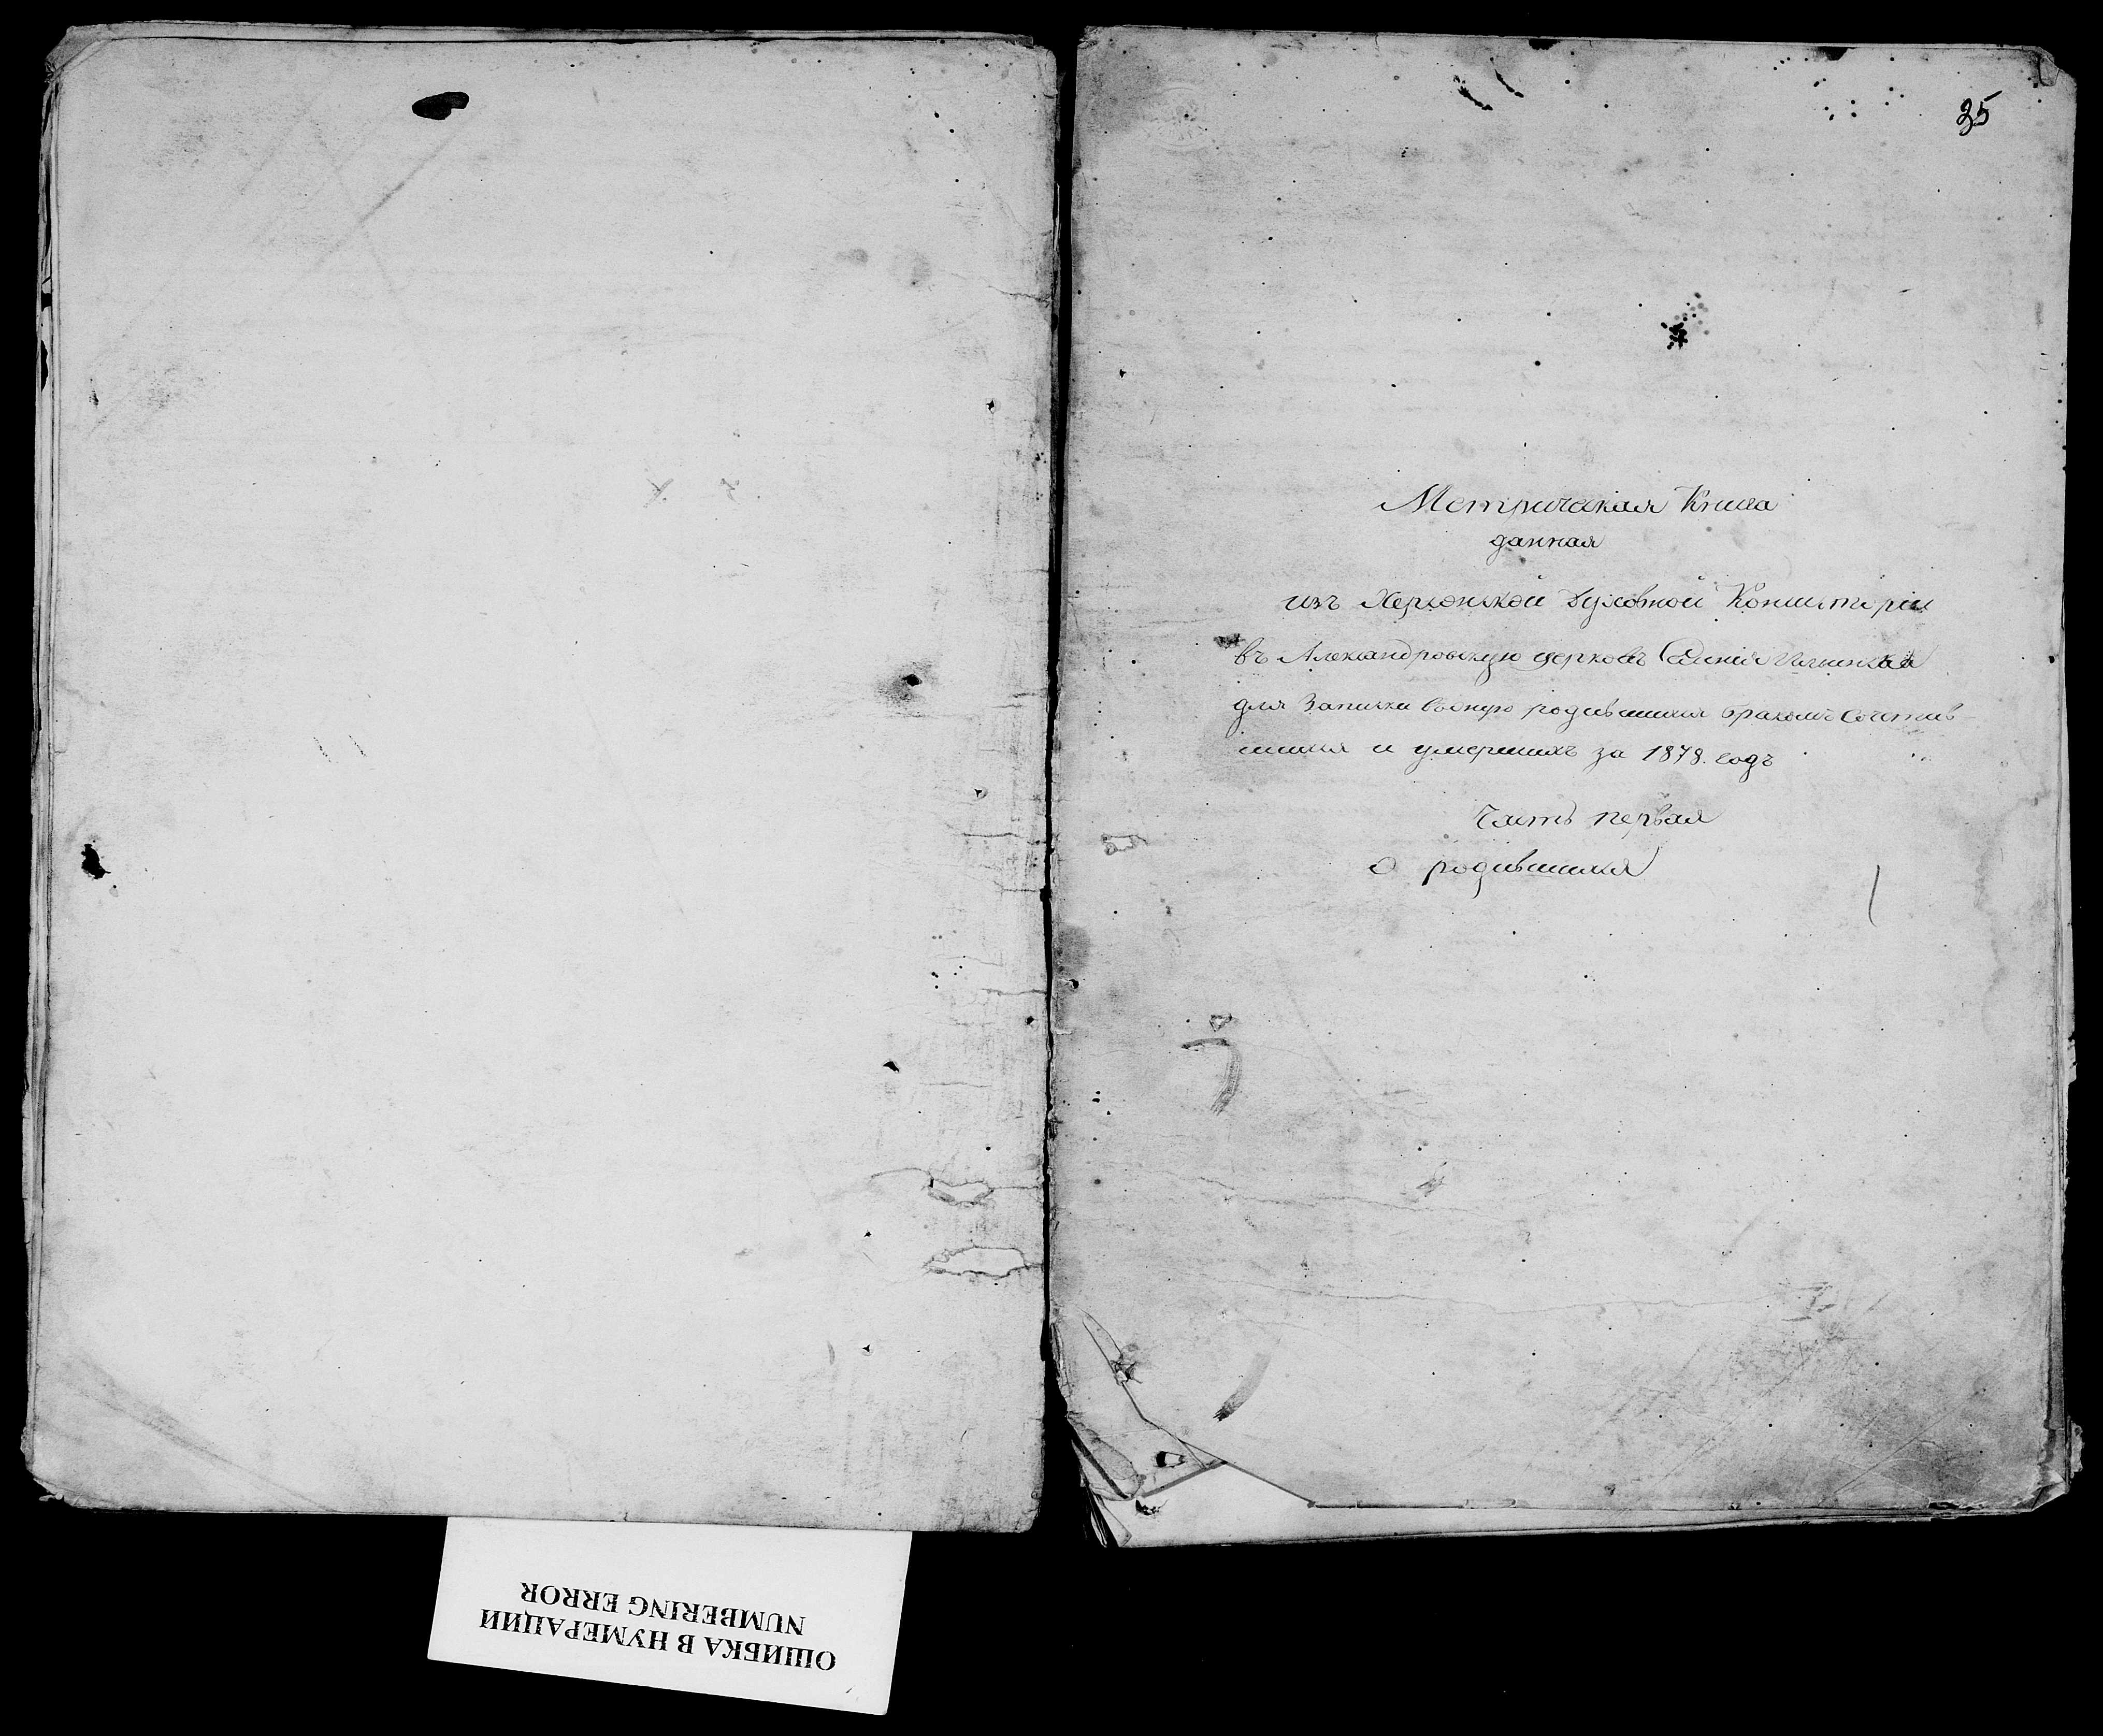 35
Метрическая Книга
данная
изъ Херсонской Духовной Консисторіи
въ Александровскую церковь Селенія
для Записки въ оную родившихся бракомъ сочетав-
шихся и умершихъ за 1878. годъ
Часть первая
о родившихся
ОШИБКА В НУМЕРАЦИИ
NUMBERING ERROR